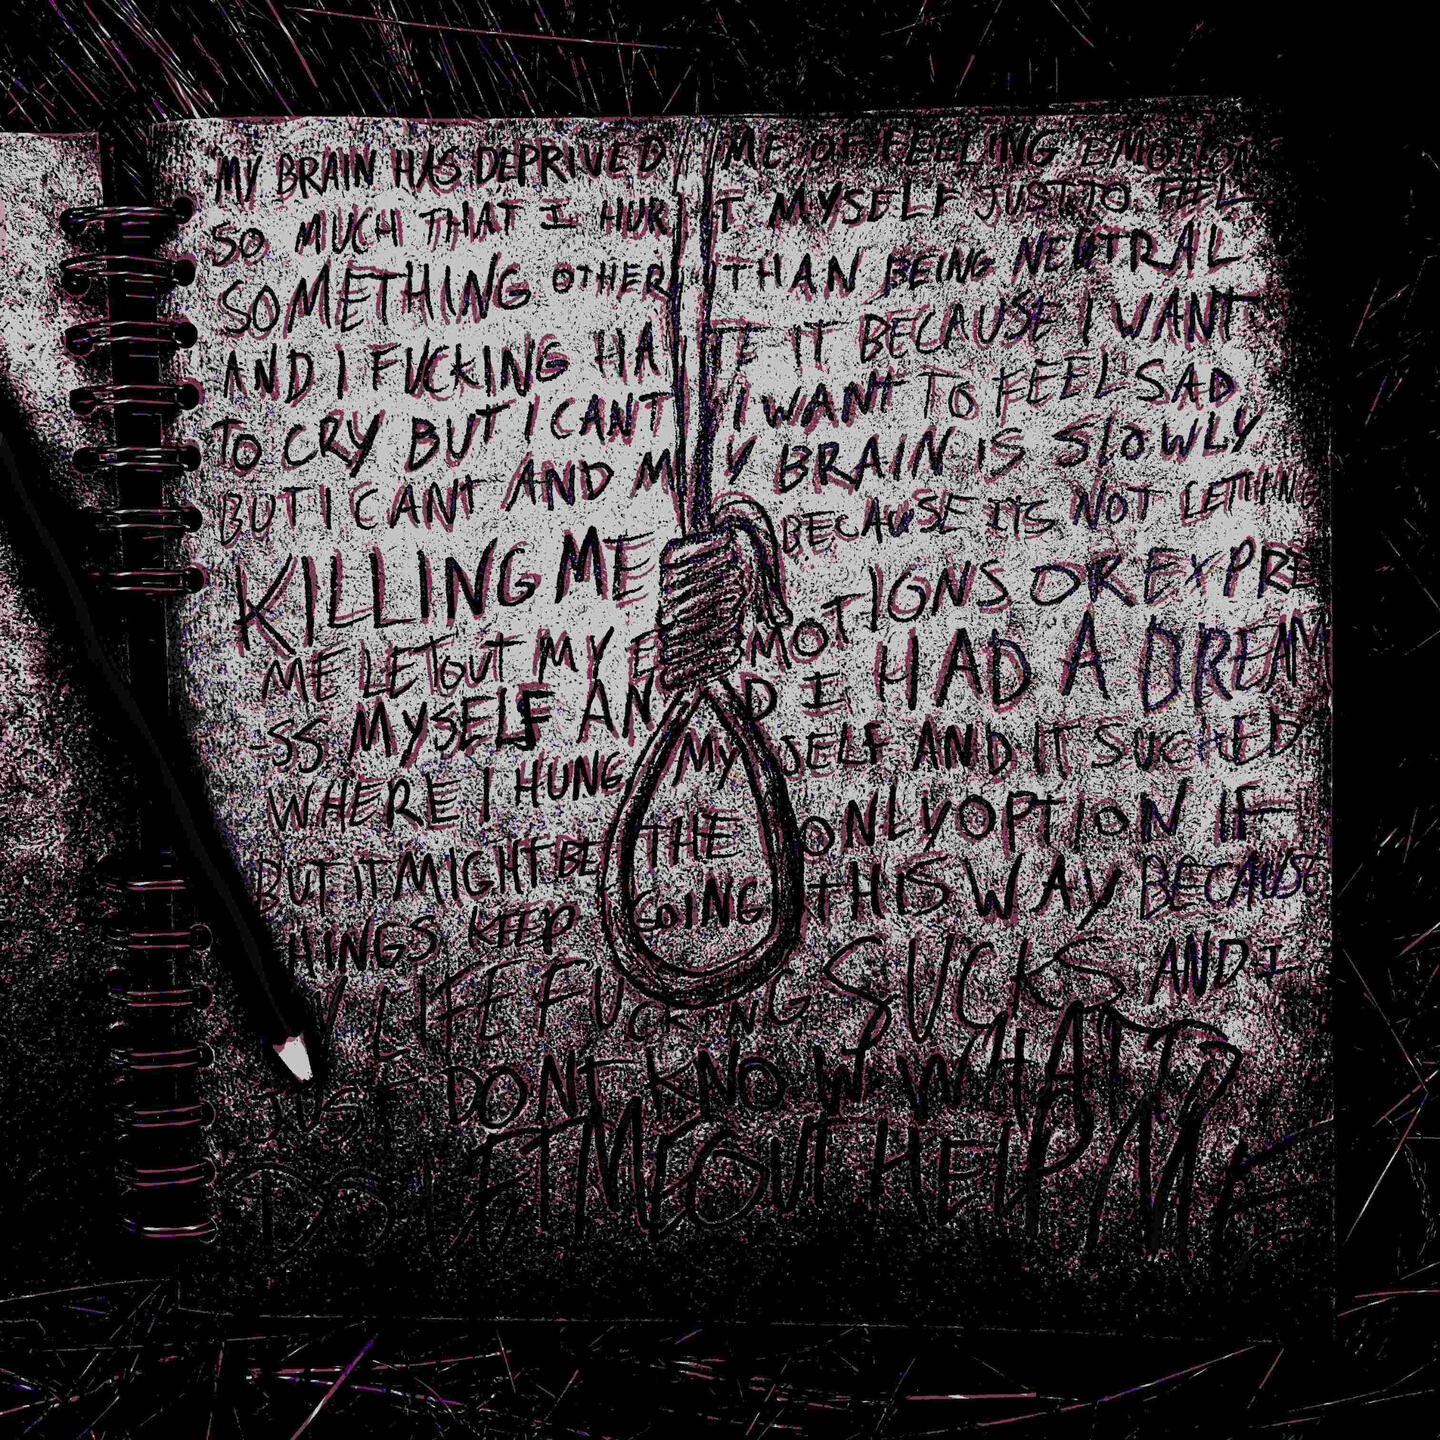 MY BRAIN HAS DEPRIVED ME OF FEELING EMOTION
SO MUCH THAT I HURT MYSELF JUST TO FEEL
SOMETHING OTHER THAN BEING NEUTRAL
AND I FUCKING HATE IT BECAUSE I WANT
TO CRY BUT I CANT I WANT TO FEEL SAD
BUT I CANT AND MY BRAIN IS SLOWLY
KILLING ME BECAUSE ITS NOT LETTING
ME LET OUT MY EMOTIONS OR EXPRE
-SS MYSELF AND I HAD A DREAM
WHERE I HUNG MYSELF AND IT SUCKED
BUT IT MIGHT BE THE ONLY OPTION IF
HINGS KEEP GOING THIS WAY BECAUSE
Y LIFE FUCKING SUCKS AND I
JUST DONT KNOW WHAT TO
DO LET ME OUT HELP ME